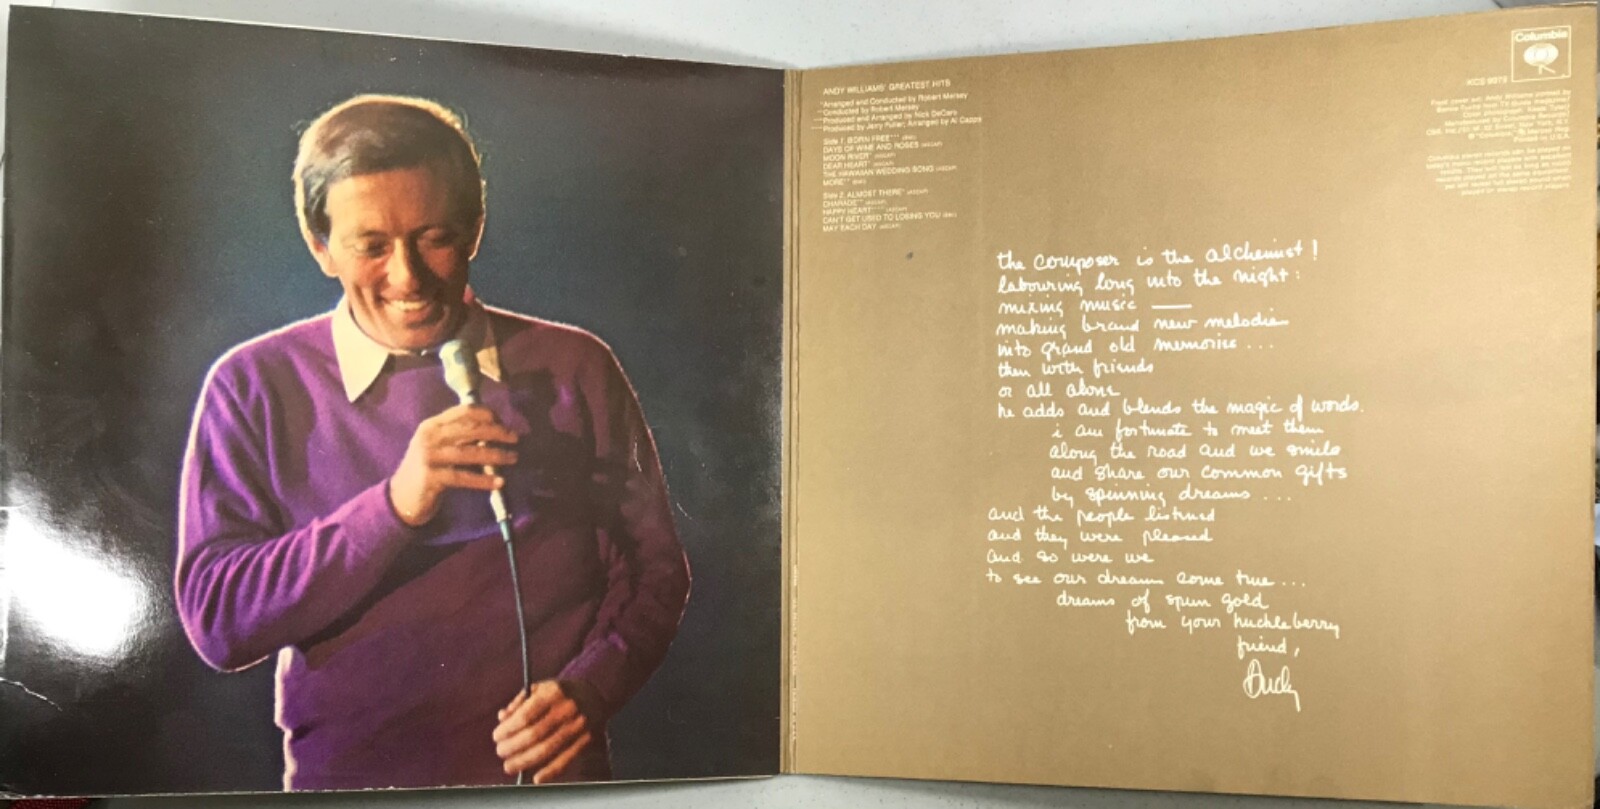 ANDY WILLIAMS' GREATEST HITS
*Arranged and Conducted by Robert Mersey
**Conducted by Robert Mersey
***Produced and Arranged by Nick DeCaro
****Produced by Jerry Fuller; Arranged by Al Capps
Side 1: BORN FREE*** (BMI)
DAYS OF WINE AND ROSES (ASCAP)
MOON RIVER* (ASCAP)
DEAR HEART* (ASCAP)
THE HAWAIIAN WEDDING SONG (ASCAP)
MORE** (BMI)
Side 2: ALMOST THERE* (ASCAP)
CHARADE** (ASCAP)
HAPPY HEART**** (ASCAP)
CAN'T GET USED TO LOSING YOU (BMI)
MAY EACH DAY (ASCAP)
Columbia
KCS 9979
the composer is the alchemist!
labouring long into the night:
mixing music —
making brand new melodies
into grand old memories...
then with friends
or all alone
he adds and blends the magic of words.
i am fortunate to meet them
along the road and we smile
and share our common gifts
by spinning dreams...
and the people listened
and they were pleased
and so were we
to see our dreams come true...
dreams of spun gold
from your huckleberry
friend,
Andy